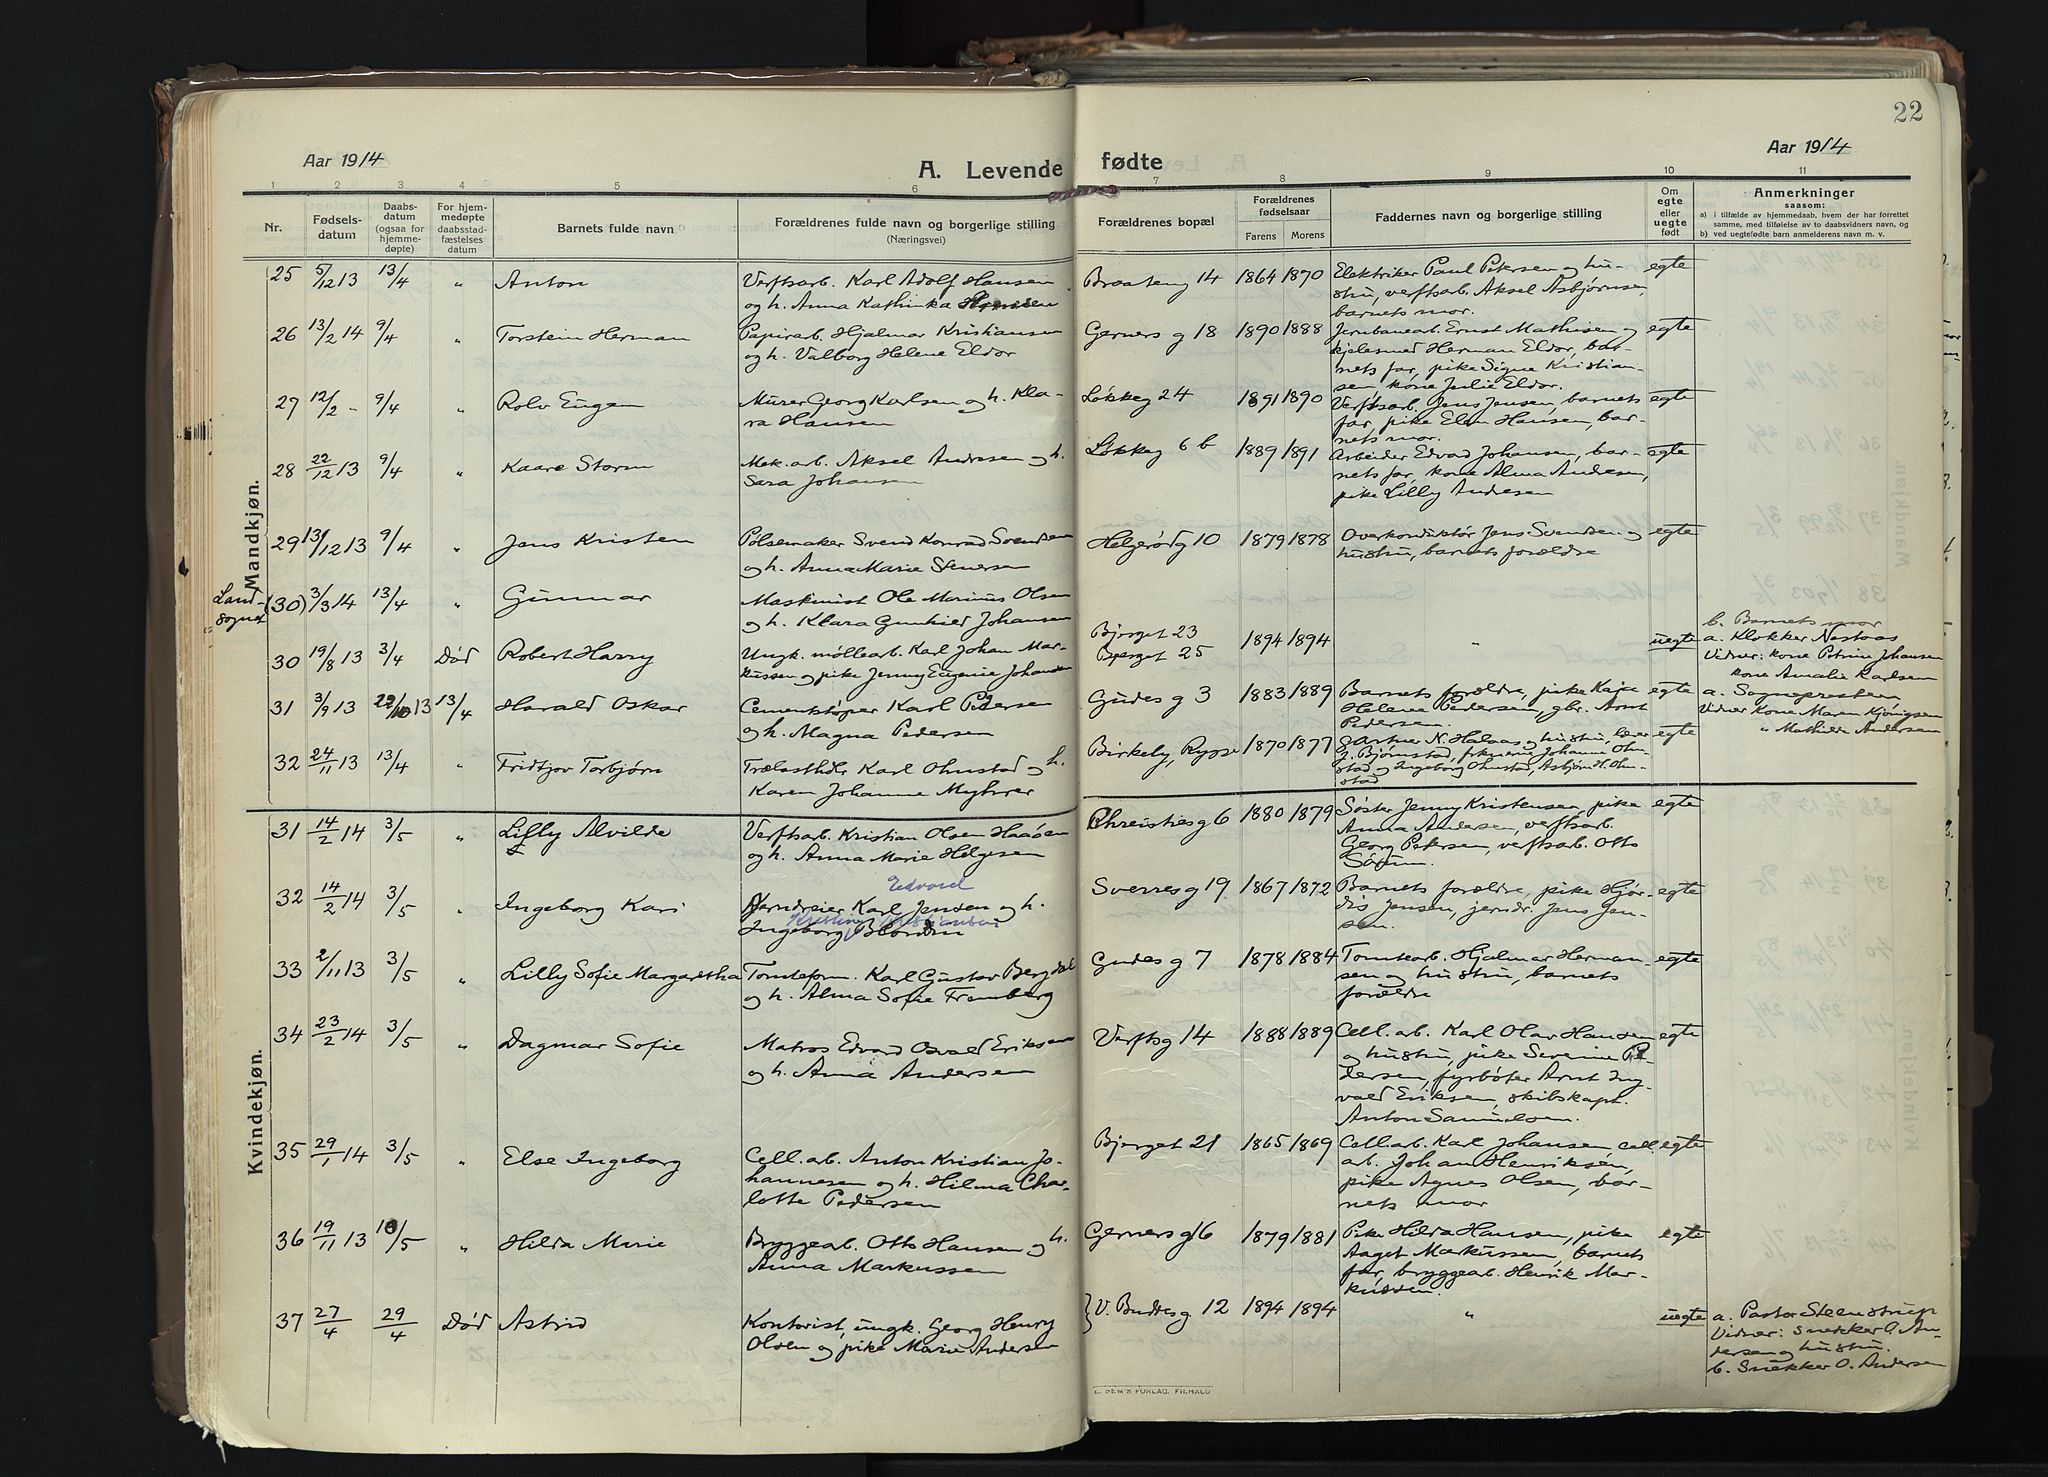 22
Aar 1914
Aar 1914
A. Levende fødte
1 2 3 4 5 6 7 8 9 10 11
Nr.
Fødselsdatum
Daabsdatum (ogsaa for hjemmedøpte)
For hjemmedøpte daabsstadfæstelses datum
Barnets fulde navn
Forældrenes fulde navn og borgerlige stilling
(Næringsvei)
Forældrenes bopæl
Forældrenes fødselsaar
Farens Morens
Faddernes navn og borgerlige stilling
Om egte eller uegte født
Anmerkninger
saasom:
a) i tilfælde av hjemmedaab, hvem der har forrettet
samme, med tilføielse av to daabsvidners navn, og
b) ved uegtefødte barn anmelderens navn m. v.
Mandkjøn.
25 5/12 13 13/4 " Anton
Verftsarb. Karl Adolf Hansen
og h. Anna Kathinka Hansen
Braateng 14 1864 1870
Elektriker Paul Petersen og hu-
stru, verftsarb. Aksel Asbjørnsen,
barnets mor.
egte
26 13/2 14 9/4 " Torstein Herman
Papirarb. Hjalmar Kristiansen
og h. Valborg Helene Eldor
Gerners g 18 1890 1888
Jernbanearb. Ernst Mathisen og
kjelesmed Herman Eldor, bar-
nets far, pike Signe Kristian-
sen, kone Julie Eldor.
egte
27 12/2 - 9/4 " Rolv Eugen
Murer Georg Karlsen og h. Kla-
ra Hansen
Løkkeg 24 1891 1890
Verftsarb. Jens Jensen, barnets
far, pike Elen Hansen, bar-
nets mor.
egte
28 22/12 13 9/4 " Kaare Storm
Mek. arb. Aksel Andresen og h.
Sara Johansen
Løkkeg 6 b 1889 1891
Arbeider Edvard Johansen, bar-
nets far, kone Alma Andresen,
pike Lilly Andresen
egte
29 13/12 13 9/4 " Jens Kristen
Pølsemaker Svend Konrad Svendsen
og h. Anna Marie Stenersen
Helgerødg 10 1879 1878
Overkonduktør Jens Svendsen og
hustru, barnets forældre
egte
Land-
sogn
(30) 3/3 14 13/4 " Gunnar
Maskinist Ole Marinus Olsen
og h. Klara Gunhild Johansen
30 19/8 13 3/4 Død Robert Harry
Ungk. møllearb. Karl Johan Mar-
kussen og pike Jenny Eugenie Johansen
Bjerget 23
Bjerget 25
1894 1894
"
uegte
b. Barnets mor
a. Klokker Nestaas
Vidner: kone Petrine Johansen
kone Amalie Karlsen
31 3/9 13 22/10 13 13/4 Harald Oskar
Cementstøper Karl Pedersen
og h. Magna Pedersen
Gudes g 3 1883 1889
Barnets forældre, pike Kaja
Helene Pedersen, gbr. Arnt
Pedersen.
egte
a. Sognepresten
Vidner Kone Maren Kjønigsen
" Mathilde Andersen
32 24/11 13 13/4 " Fridtjov Torbjørn
Trælasthdlr Karl Ohnstad og h.
Karen Johanne Myhrer
Birkely, Rygge 1870 1877
Gartner N. Halaas og hustru, lærer
J. Bjørnstad, frknerne Johanne Ohn-
stad og Ingeborg Ohnstad, Asbjørn H. Ohn-
stad
egte
Kvindekjøn.
31 14/2 14 3/5 " Lilly Alvilde
Verftsarb. Kristian Olsen Haaøen
og h. Anna Marie Helgesen
Chreisties g 6 1880 1879
Søster Jenny Kristensen, pike
Anna Andersen, verftsarb.
Georg Petersen, verftsarb. Otto
Sørum.
egte
32 14/2 14 3/5 " Ingeborg Kari
Edvard
Jerndreier Karl Jensen og h.
Kristine Kristiansen
Ingeborg Blondin
Sverres g 19. 1867 1872
Barnets forældre, pike Hjør-
dis Jensen, jerndr. Jens Jen-
sen.
egte
33 2/11 13 3/5 " Lilly Sofie Margaretha
Tomteform. Karl Gustav Bergdal
og h. Alma Sofie Framberg
Gudes g 7 1878 1884
Tomtearb. Hjalmar Herman-
sen og hustru, barnets
forældre
egte
34 23/2 14 3/5 " Dagmar Sofie
Matros Edvard Osvald Eriksen
og h. Anna Andersen
Verftsg 14 1888 1889
Cell. arb. Karl Olav Hansen
og hustru, pike Severine Pe-
dersen, fyrbøter Arnt Ing-
vald Eriksen, skibskapt.
Anton Samuelsen.
egte
35 29/1 14 3/5 " Else Ingeborg
Cell. arb. Anton Kristian Jo-
hannesen og h. Hilma Char-
lotte Pedersen
Bjerget 21 1865 1869
Cell. arb. Karl Johansen, cell.
arb. Johan Henriksen,
pike Agnes Olsen, bar-
nets mor
egte
36 19/11 13 10/5 " Hilda Marie
Bryggearb. Otto Hansen og h.
Anna Markussen
Gerners g 16 1879 1881
Pike Hilda Hansen, pike
Aagot Markussen, barnets
far, bryggearb. Henrik Mar-
kussen.
egte
37 27/4 29/4 Død Astrid
Kontorist, ungk. Georg Henry
Olsen og pike Marie Andersen
V. Buddes g. 12 1894 1894
"
uegte
a. Pastor Steenstrup
Vidner: snekker O. An-
dersen og hustru.
b. Snekker O. Andersen
E. SEM'S FORLAG, FR.HALD